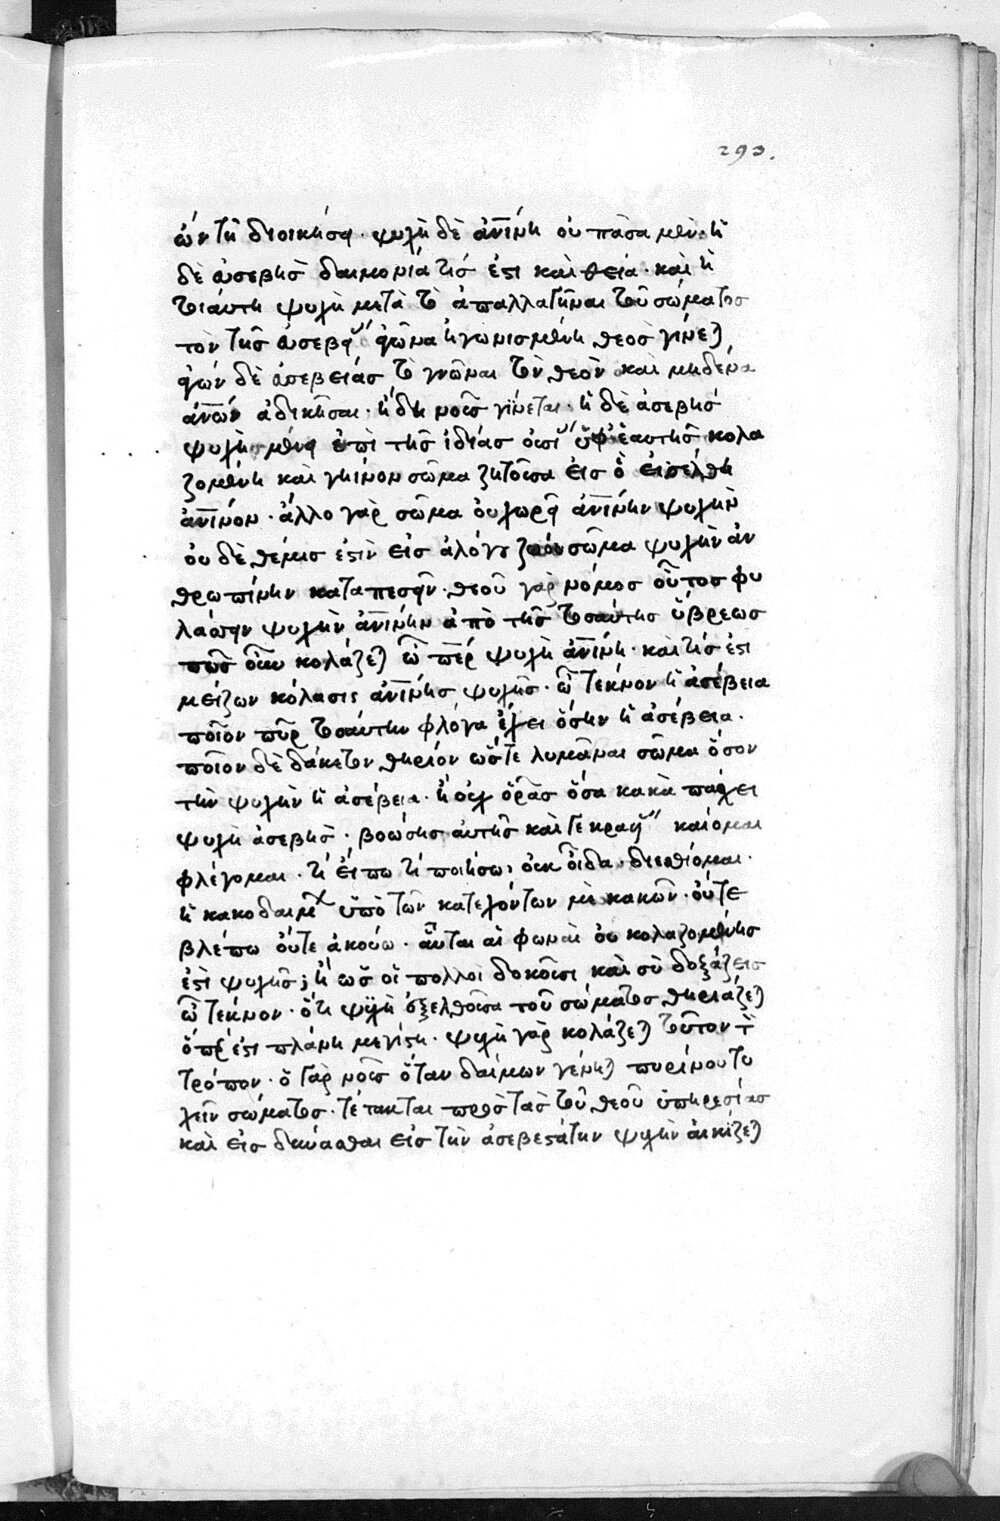 293.
ών τῆ διοικήσει. ψυχὴ δὲ ἀν̅ίνη οὐ πᾶσα μὲν. ἡ
δὲ εὐσεβὴς δαιμονία τίς ἐστι καὶ θεία. καὶ ἡ
τοιαύτη ψυχὴ μετὰ τὸ ἀπαλλαγῆναι τοῦ σώματος
τὸν τῆς εὐσεβείας ἀγῶνα ἠγωνισμένη θεὸς γίνεται
ἀγών δὲ εὐσεβείας τὸ γνῶναι τὸν θεὸν καὶ μηδένα
ἀν̅ων ἀδικῆσαι. ἤδη νοῦς γίνεται. ἡ δὲ ἀσεβὴς
ψυχὴ μένει ἐπὶ τῆς ἰδίας οὐσίας ὑφ' ἑαυτῆς κολα
ζομένη καὶ γήϊνον σῶμα ζητοῦσα εἰς ὃ εἰσέλθη
ἀν̅ινον. ἄλλο γὰρ σῶμα οὐ χωρεῖ ἀν̅ίνην ψυχὴν
οὐ δὲ θέμις ἐστὶν εἰς ἀλόγου ζώου σῶμα ψυχὴν ἀν
θρωπίνην καταπεσεῖν. θεοῦ γὰρ νόμος οὗτος φυ
λάσσειν ψυχὴν ἀν̅ίνην ἀπὸ τῆς τοσαύτης ὕβρεως
πῶς οὖν κολάζεται ὦ π̅ερ ψυχὴ ἀν̅ίνη. καὶ τίς ἐστι
μείζων κόλασις ἀν̅ίνης ψυχῆς. ὦ τέκνον ἢ ἀσέβεια
ποῖον πῦρ τοσαύτην φλόγα ἔχει ὅσην ἡ ἀσέβεια.
ποῖον δὲ δάκετον θηρίον ὥστε λυμᾶναι σῶμα ὅσον
τὴν ψυχὴν ἡ ἀσέβεια. ἢ οὐχ ὁρᾶς ὅσα κακὰ πάσχει
ψυχὴ ἀσεβὴς, βοώσης αὐτῆς καὶ κεκραγυίας καίομαι
φλέγομαι. τί εἴπω τί ποιήσω, οὐκ οἶδα. διεσθίομαι.
ἡ κακοδαίμων ὑπὸ τῶν κατεχόντων με κακῶν. οὔτε
βλέπω οὔτε ἀκούω. αὗται αἱ φωναὶ οὐ κολαζομένης
ἐστι ψυχῆς; ἢ ὡς οἱ πολλοὶ δοκοῦσι καὶ σὺ δοξάζεις
ὦ τέκνον. ὅτι ψυχὴ ἐξελθοῦσα τοῦ σώματος θηριάζεται
ὅπέρ ἐστι πλάνη μεγίστη. ψυχὴ γὰρ κολάζεται τοῦτον τὸν
τρόπον. ὁ γὰρ νοῦς ὅταν δαίμων γένηται πυρίνου τυ
χεῖν σώματος. τέτακται πρὸς τὰς τοῦ θεοῦ ὑπηρεσίας
καὶ εἰσδύσασθαι εἰς τὴν ἀσεβεστάτην ψυχὴν αἰκίζεται